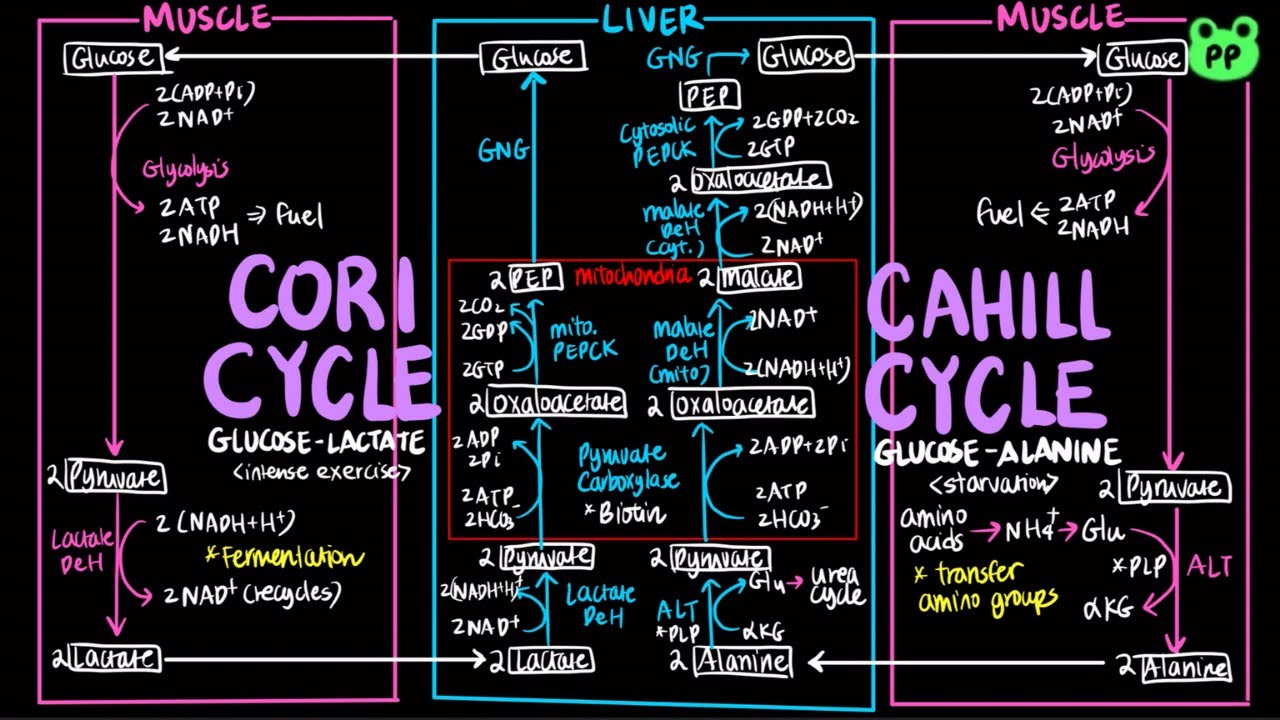 MUSCLE
Glucose
2(ADP+Pi)
2NAD+
Glycolysis
2ATP
2NADH ⇒ fuel
CORI
CYCLE
GLUCOSE-LACTATE
<intense exercise>
2 Pyruvate
Lactate
DeH
2(NADH+H+)
*Fermentation
2NAD+ (recycles)
2 Lactate
LIVER
Glucose
GNG
2 PEP
mitochondria
2CO2
2GDP
2GTP
mito.
PEPCK
2 Oxaloacetate
2ADP
2Pi
2ATP
2HCO3-
Pyruvate
Carboxylase
*Biotin
2 Pyruvate
2(NADH+H+)
2NAD+
Lactate
DeH
2 Lactate
GNG
Glucose
PEP
Cytosolic
PEPCK
2GDP+2CO2
2GTP
2 Oxaloacetate
malate
DeH
(cyt.)
2(NADH+H+)
2NAD+
2 Malate
malate
DeH
(mito)
2NAD+
2(NADH+H+)
2 Oxaloacetate
2ADP+2Pi
2ATP
2HCO3-
2 Pyruvate
ALT
*PLP
Glu → urea
cycle
αKG
2 Alanine
MUSCLE
PP
Glucose
2(ADP+Pi)
2NAD+
Glycolysis
fuel ⇐ 2ATP
2NADH
CAHILL
CYCLE
GLUCOSE-ALANINE
<starvation>
2 Pyruvate
amino
acids → NH4+ → Glu
*PLP
ALT
* transfer
amino groups
αKG
2 Alanine